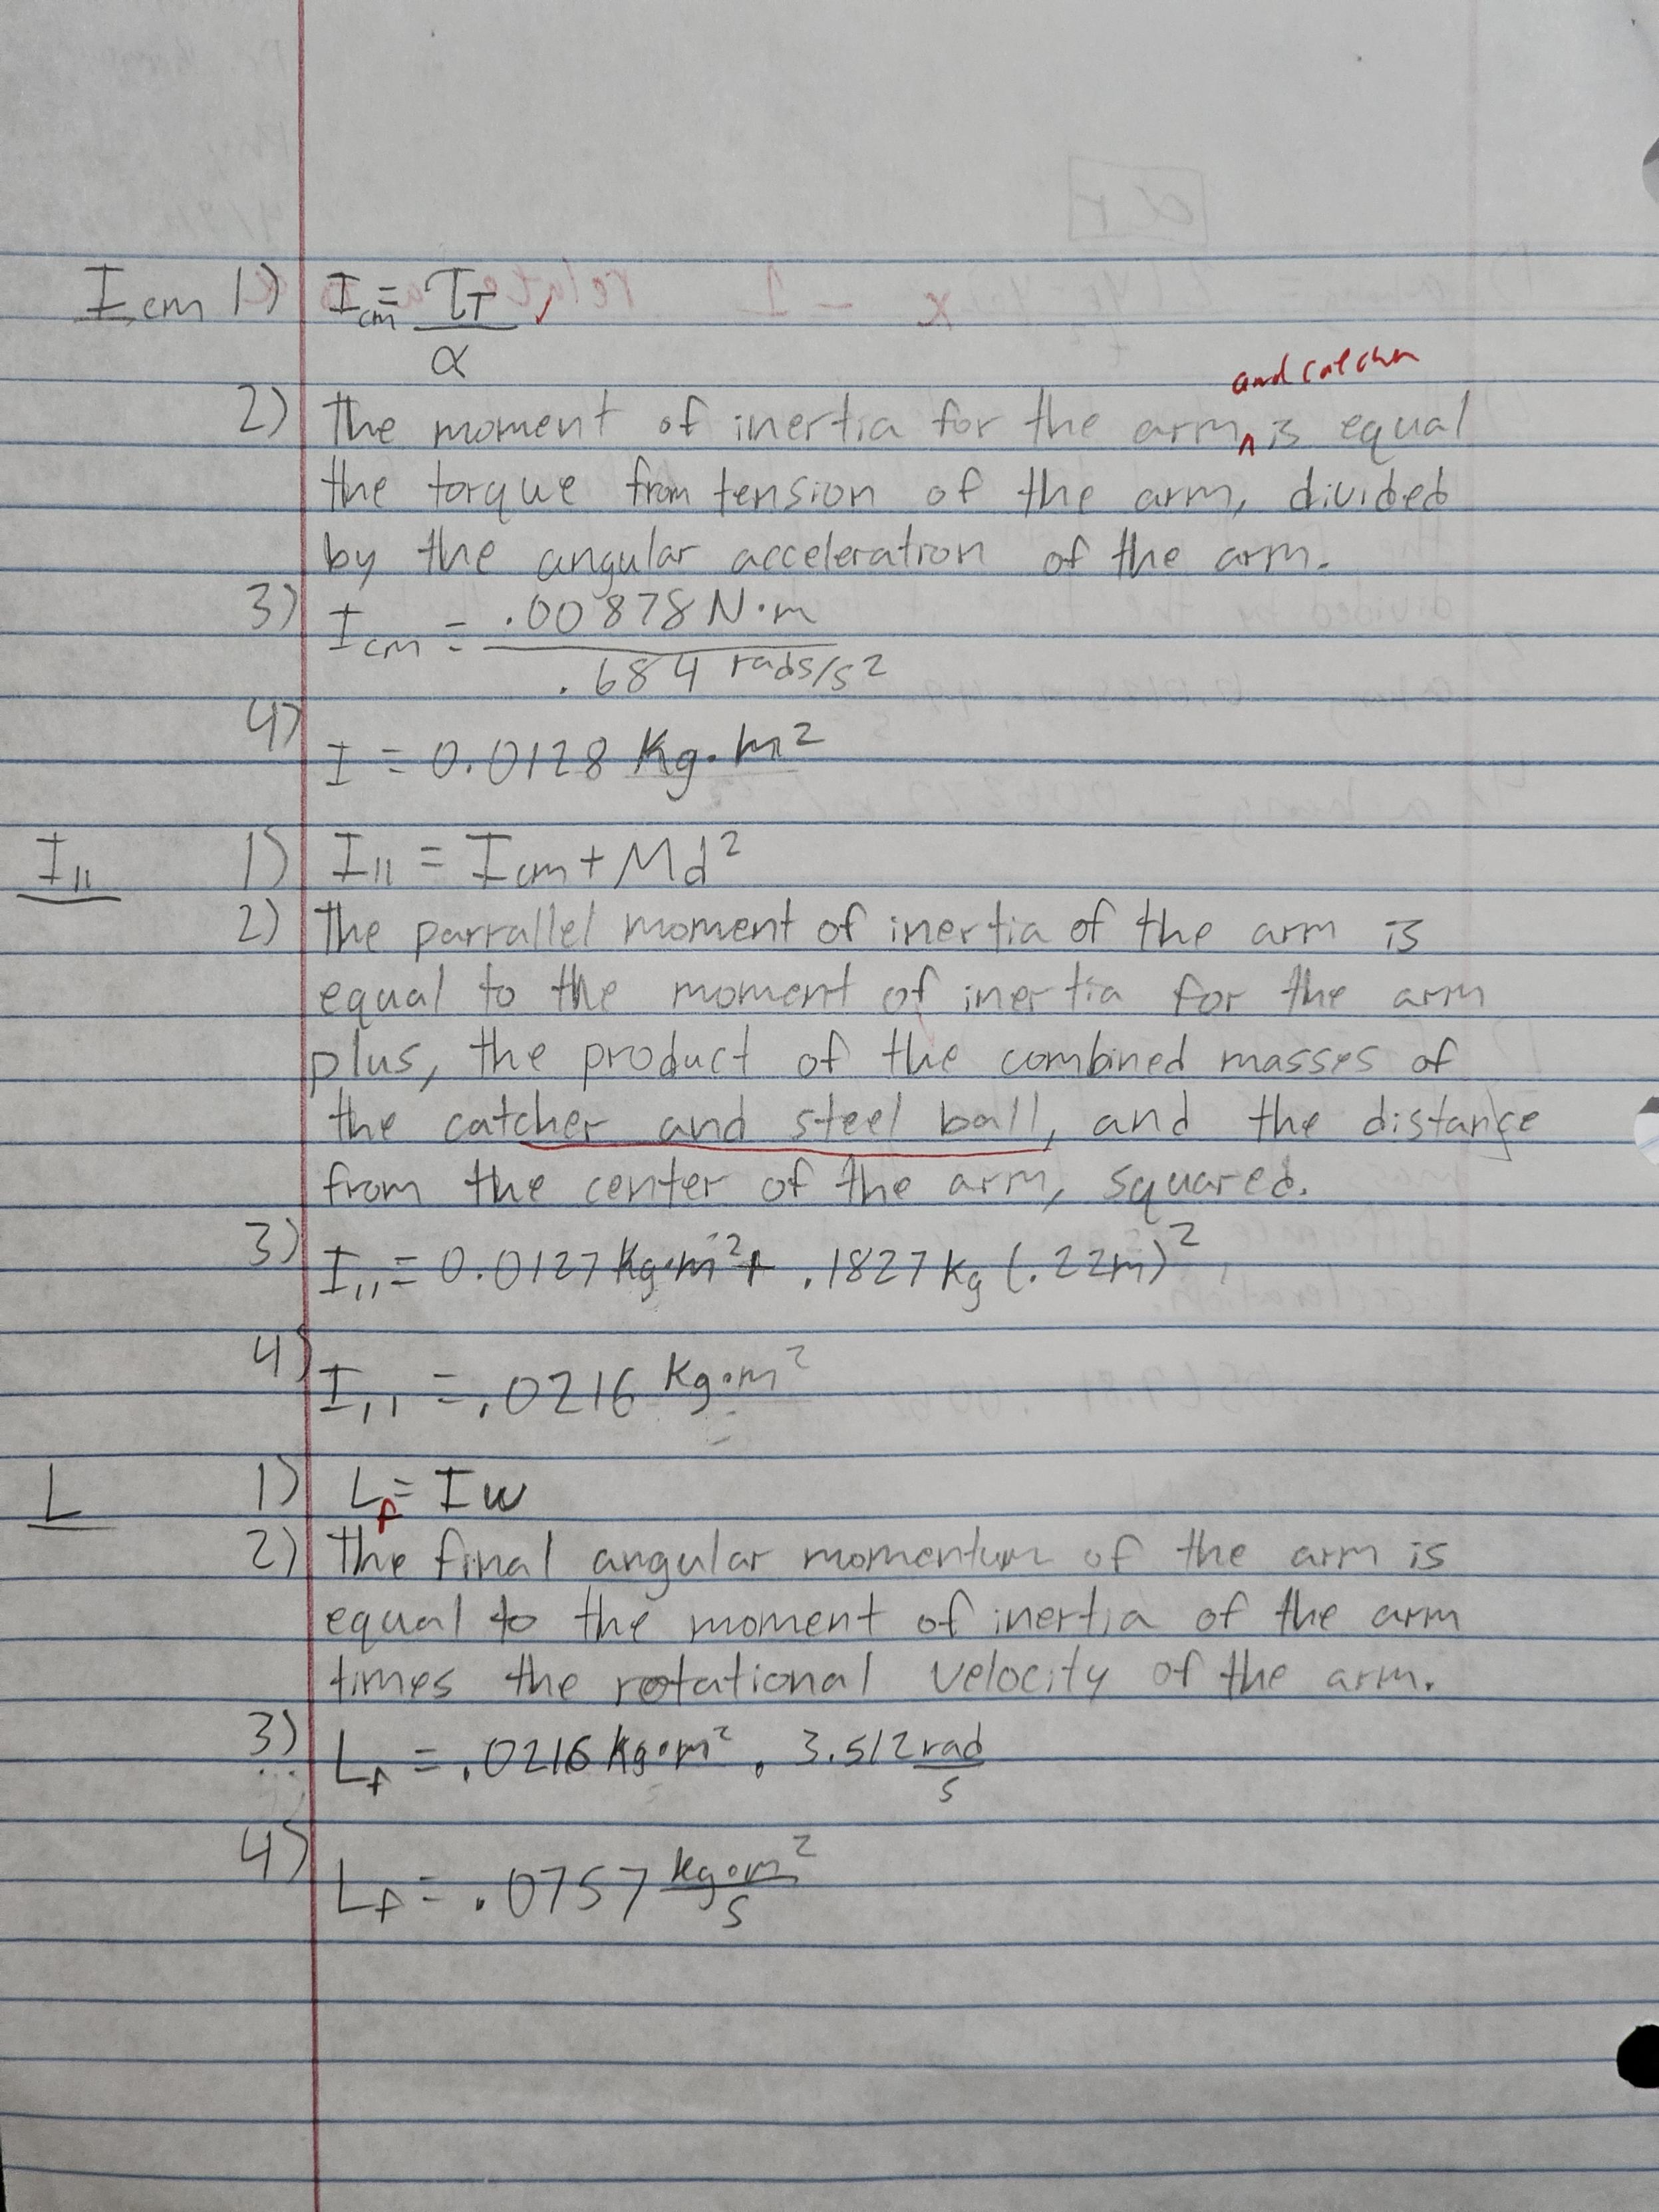 I cm 1) I cm = τT / α
and catcher
2) The moment of inertia for the arm ^ is equal
the torque from tension of the arm, divided
by the angular acceleration of the arm.
3) I cm = .00878 N·m / .684 rads/s²
4) I = 0.0128 Kg·m²
I|| 1) I|| = I cm + Md²
2) The parrallel moment of inertia of the arm is
equal to the moment of inertia for the arm
plus, the product of the combined masses of
the catcher and steel ball, and the distance
from the center of the arm, squared.
3) I|| = 0.0127 Kg·m² + .1827 kg (.22m)²
4) I|| = .0216 Kg·m²
L 1) Lf = Iw
2) The final angular momentum of the arm is
equal to the moment of inertia of the arm
times the rotational velocity of the arm.
3) Lf = .0216 kg·m² . 3.512 rad/s
4) Lf = .0757 kg·m²/s